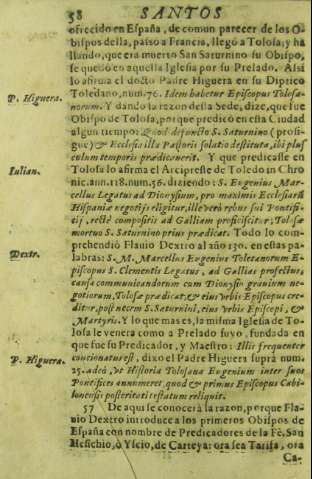 58 SANTOS
ofrecido en España, de comun parecer de los O-
bispos della, passò a Francia, llegò a Tolosa, y ha
llando, que era muerto San Saturnino su Obispo,
se quedò en aquella Iglesia por su Prelado. Assi
lo afirma el docto Padre Higuera en su Diptico
P. Higuera.
Toledano, num. 76. Idem habetur Episcopus Tolosa-
norum. Y dando la razon desta Sede, dize, que fue
Obispo de Tolosa, porque predicò en esta Ciudad
algun tiempo: Quod defuncto S. Saturnino (prosi-
gue) & Ecclesia illa Pastoris solatio destituta, ibi plus
culum temporis prædicauerit. Y que predicasse en
Iulian.
Tolosa lo afirma el Arcipreste de Toledo in Chro
nic. ann. 118. num. 56. diziendo: S. Eugenius Mar-
cellus Legatus ad Dionysium, pro maximis Ecclesiarũ
Hispaniæ negotijs eligitur, ille verò rebus sui Pontifi-
cij, rectè compositis ad Galliam proficiscitur, Tolosæ
mortuo S. Saturnino prius prædicat. Todo lo com-
prehendiò Flauio Dextro al año 130. en estas pa-
Dextr.
labras: S. M. Marcellus Eugenius Toletanorum E-
piscopus S. Clementis Legatus, ad Gallias profectus,
causa communicandorum cum Dionysio granium ne-
gotiorum, Tolosæ prædicat, & eius vrbis Episcopus cre-
ditur, post necem S. Saturnini, eius vrbis Episcopi, &
Martyris. Y lo que mas es, la misma Iglesia de To-
losa le venera como a Prelado suyo, fundada en
que fue su Predicador, y Maestro: Illi frequenter
P. Higuera.
concionatur est, dixo el Padre Higuera suprà num.
25. adeò, vt Historia Tolosana Eugenium inter suos
Pontifices annumeret, quod & primus Episcopus Cabi-
lonensis posteritati testatum reliquit.
57 De aqui se conocerà la razon, porque Fla-
uio Dextro introduce a los primeros Obispos de
España con nombre de Predicadores de la Fè. San
Hesichio, ò Yscio, de Carteya: ora sea Tarifa, ora
Ca-